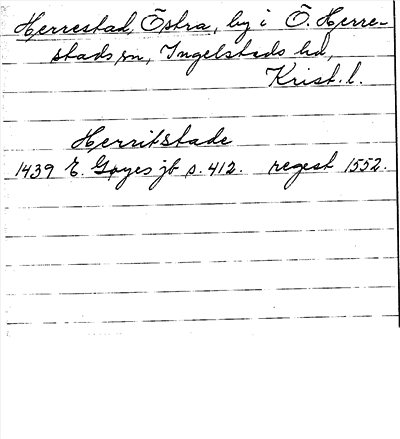 Herrestad, Östra, by i Ö. Herre-
stads sn, Ingelstads hd,
Krist. l.
Herritstade
1439 E. Gøyes jb s. 412. regest 1552.